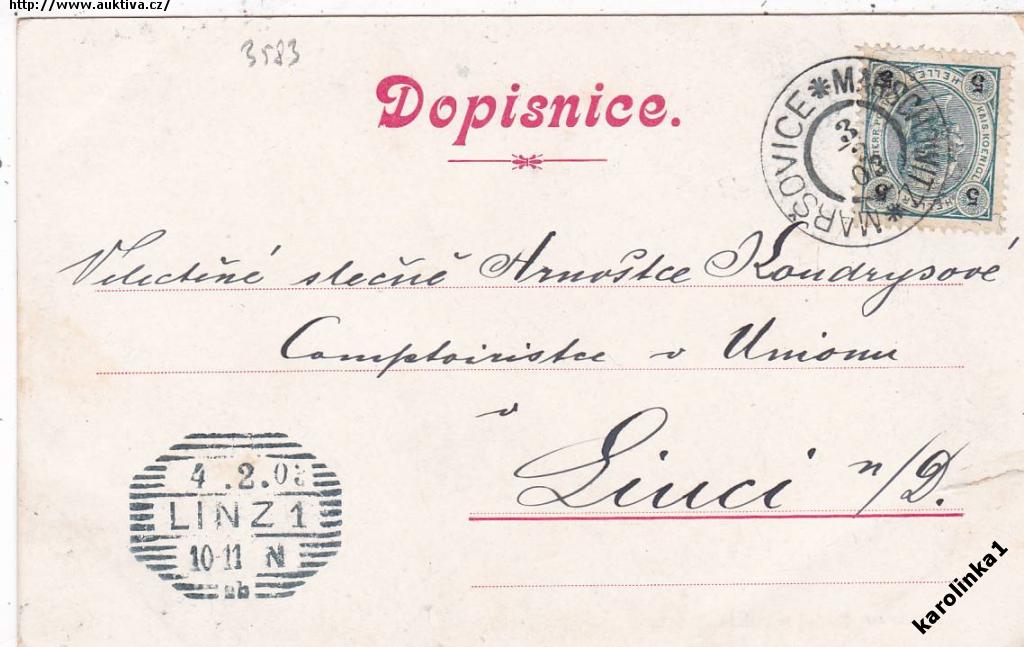 http://www.auktiva.cz/
3583
Dopisnice.
MARŠOVICE
3 2 03
5 5
HELLER
KAIS. KOENIGL.
5 5
HELLER
Velectěné slečně Arnoštce Kondrysové
Comptoiristce v Unionu
v
Linci n/D.
4.2.03
LINZ 1
10-11 N
karolinka1